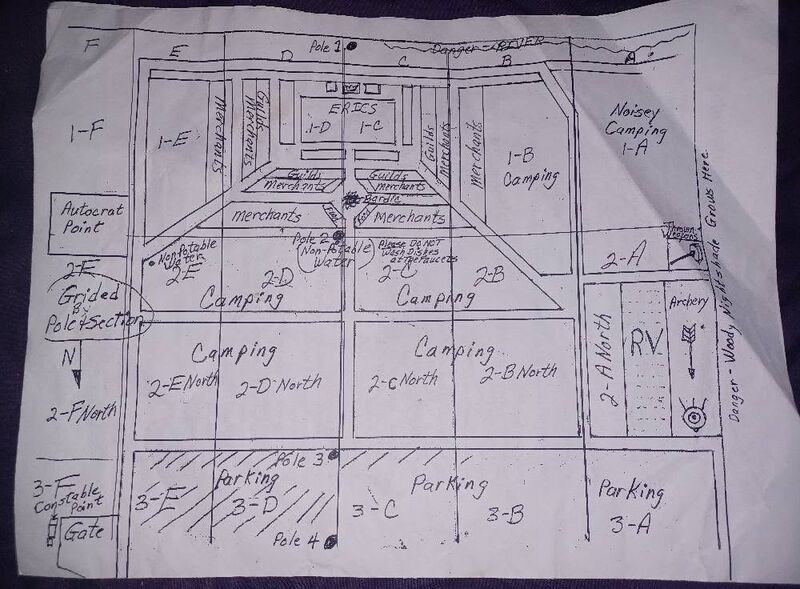 F
E
D
Pole 1
C
Danger - RIVER
B
A
1-F
1-E
Merchants
Guilds
Merchants
ERICS
1-D
1-C
Guilds
Merchants
merchants
1-B
Camping
Noisey
Camping
1-A
Guilds
merchants
Guilds
merchants
Bardic
Autocrat
Point
merchants
Food
Merchants
Pole 2
Thrown
Weapons
2-F
Non Potable
Water
2-E
2-D
Camping
Non-Potable
Water
Please DO NOT
Wash Dishes
at the Faucets
2-C
2-B
Camping
2-A
Grided
By
Pole & Section
N
2-F North
Camping
2-E North
2-D North
Camping
2-C North
2-B North
2-A North
RV
Archery
Danger - Woody Nightshade Grows Here.
3-F
Constable
Point
Gate
Pole 3
Parking
3-E
3-D
Pole 4
Parking
3-C
3-B
Parking
3-A